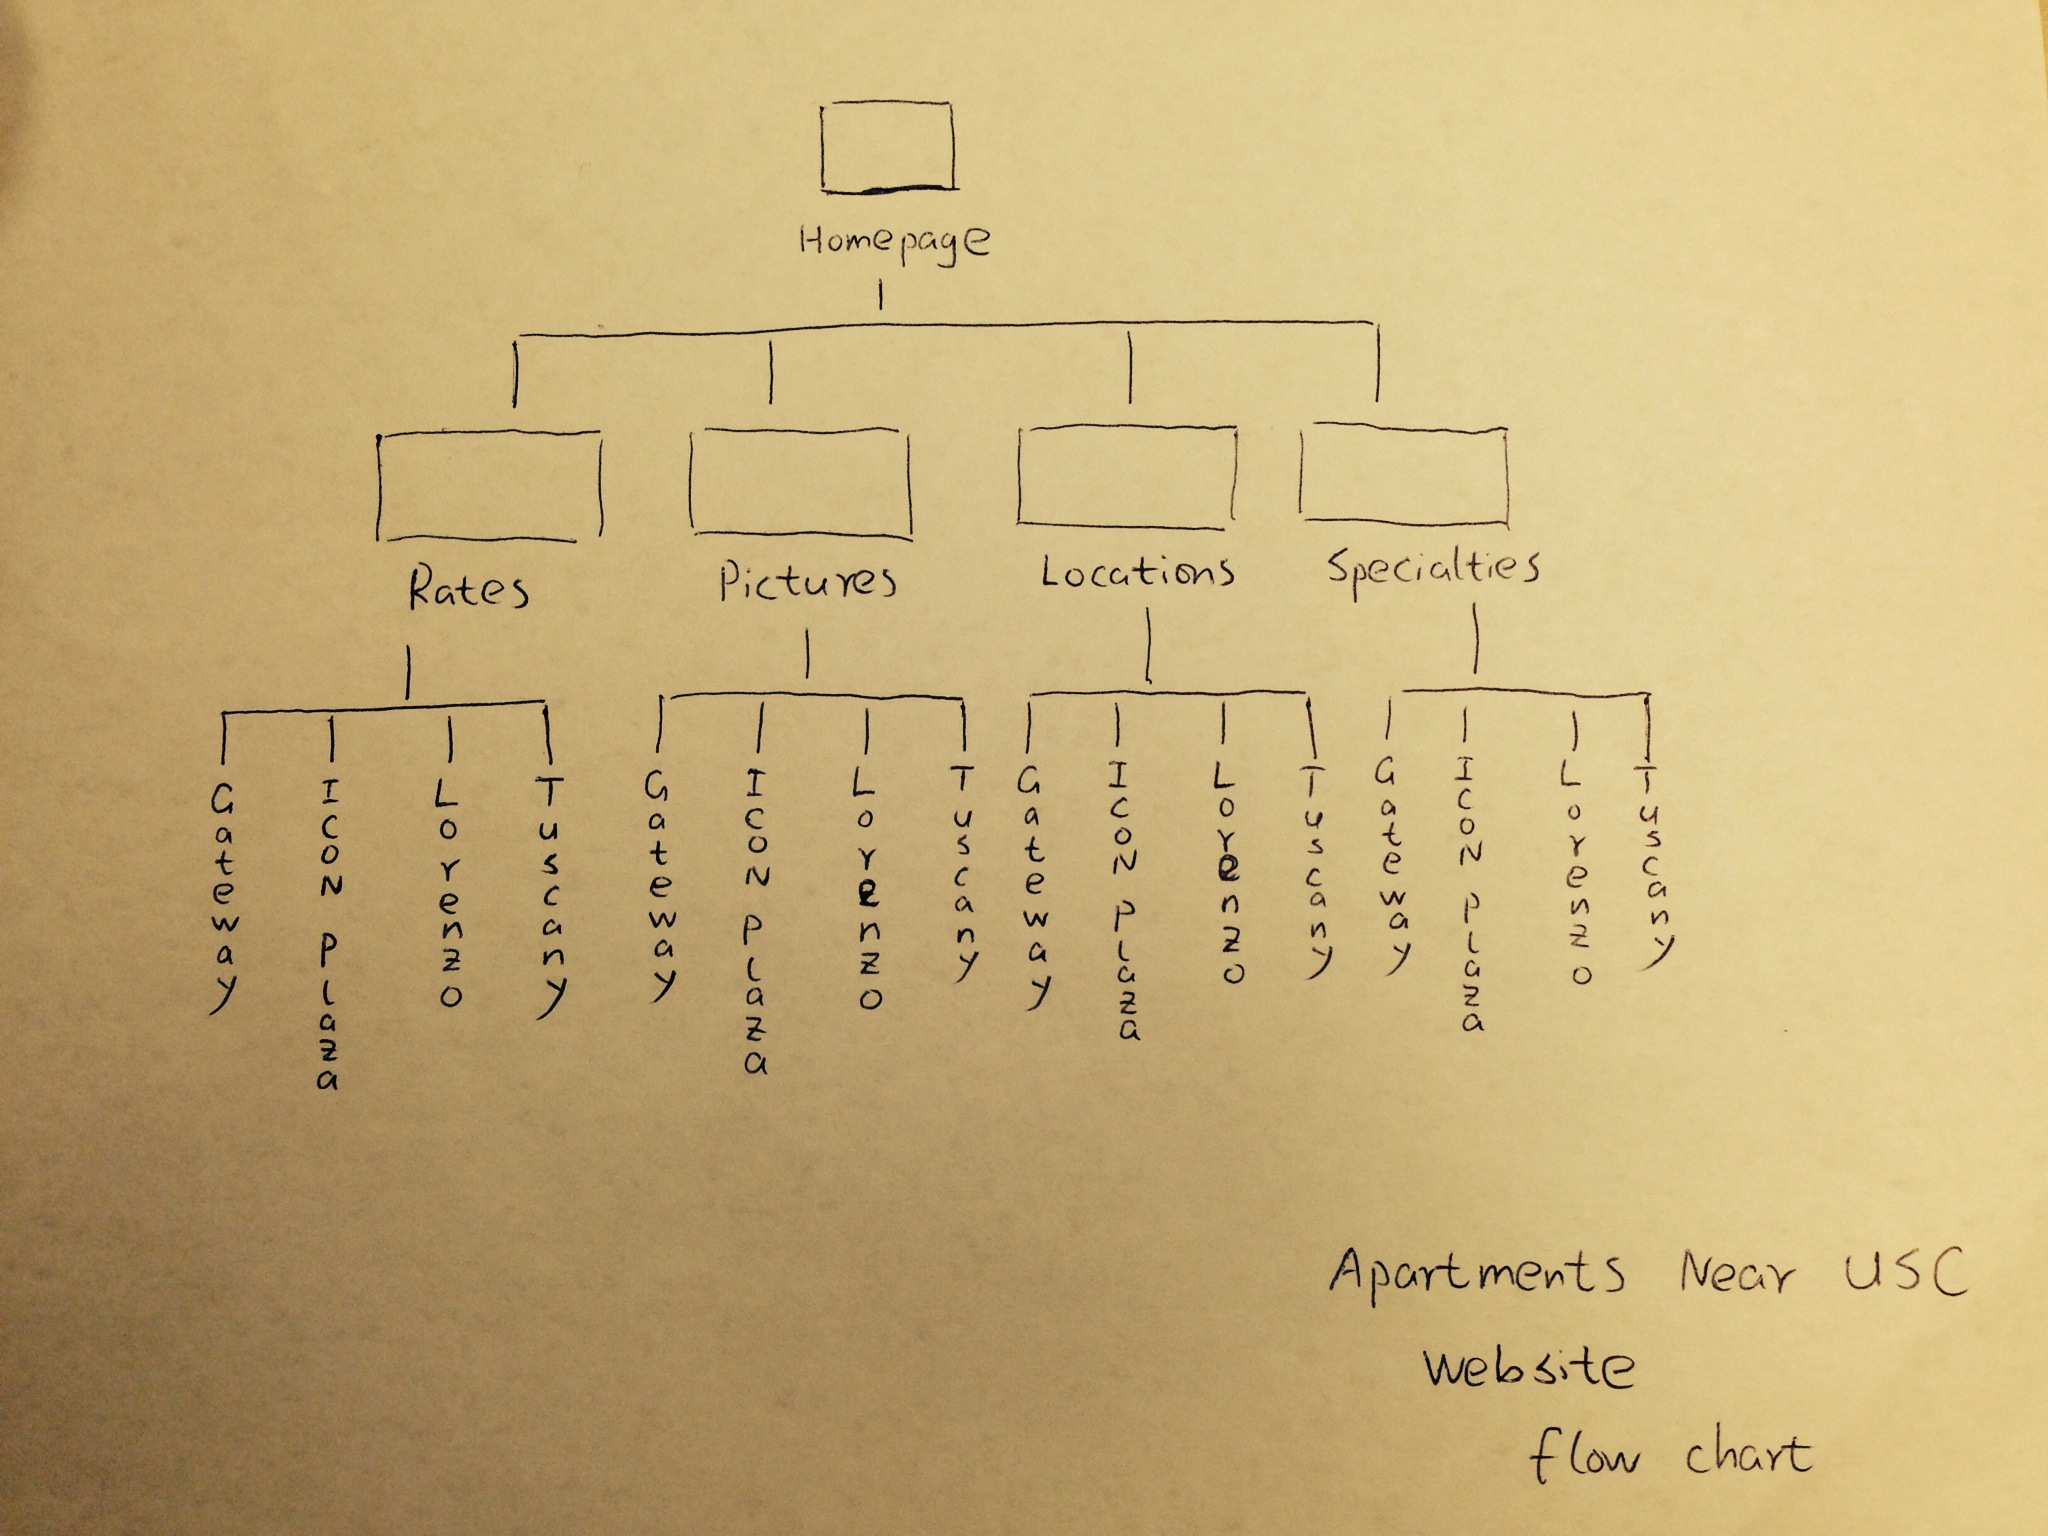 Homepage
Rates
Pictures
Locations
Specialties
Gateway
ICON Plaza
Lorenzo
Tuscany
Gateway
ICON Plaza
Lorenzo
Tuscany
Gateway
ICON Plaza
Lorenzo
Tuscany
Gateway
ICON Plaza
Lorenzo
Tuscany
Apartments Near USC
Website
flow chart